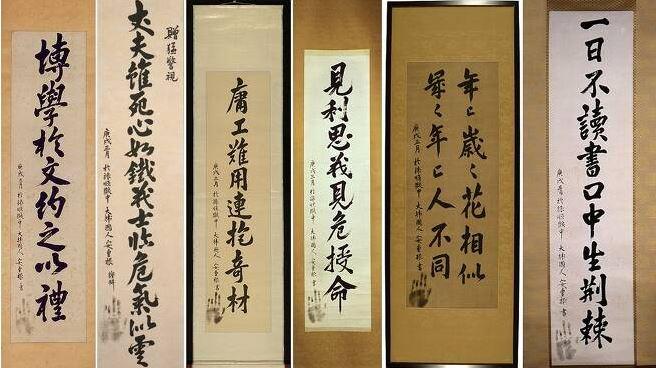 博學於文約之以禮
庚戌三月 於旅順獄中 大韓國人 安重根 書
贈猛警視
丈夫雖死心如鐵義士臨危氣似雲
庚戌三月 於旅順獄中 大韓國人 安重根 謹拜
庸工難用連抱奇材
庚戌三月 於旅順獄中 大韓國人 安重根 書
見利思義見危授命
庚戌三月 於旅順獄中 大韓國人 安重根 書
年〻歲〻花相似
歲〻年〻人不同
庚戌三月 於旅順獄中 大韓國人 安重根 書
一日不讀書口中生荊棘
庚戌三月 於旅順獄中 大韓國人 安重根 書